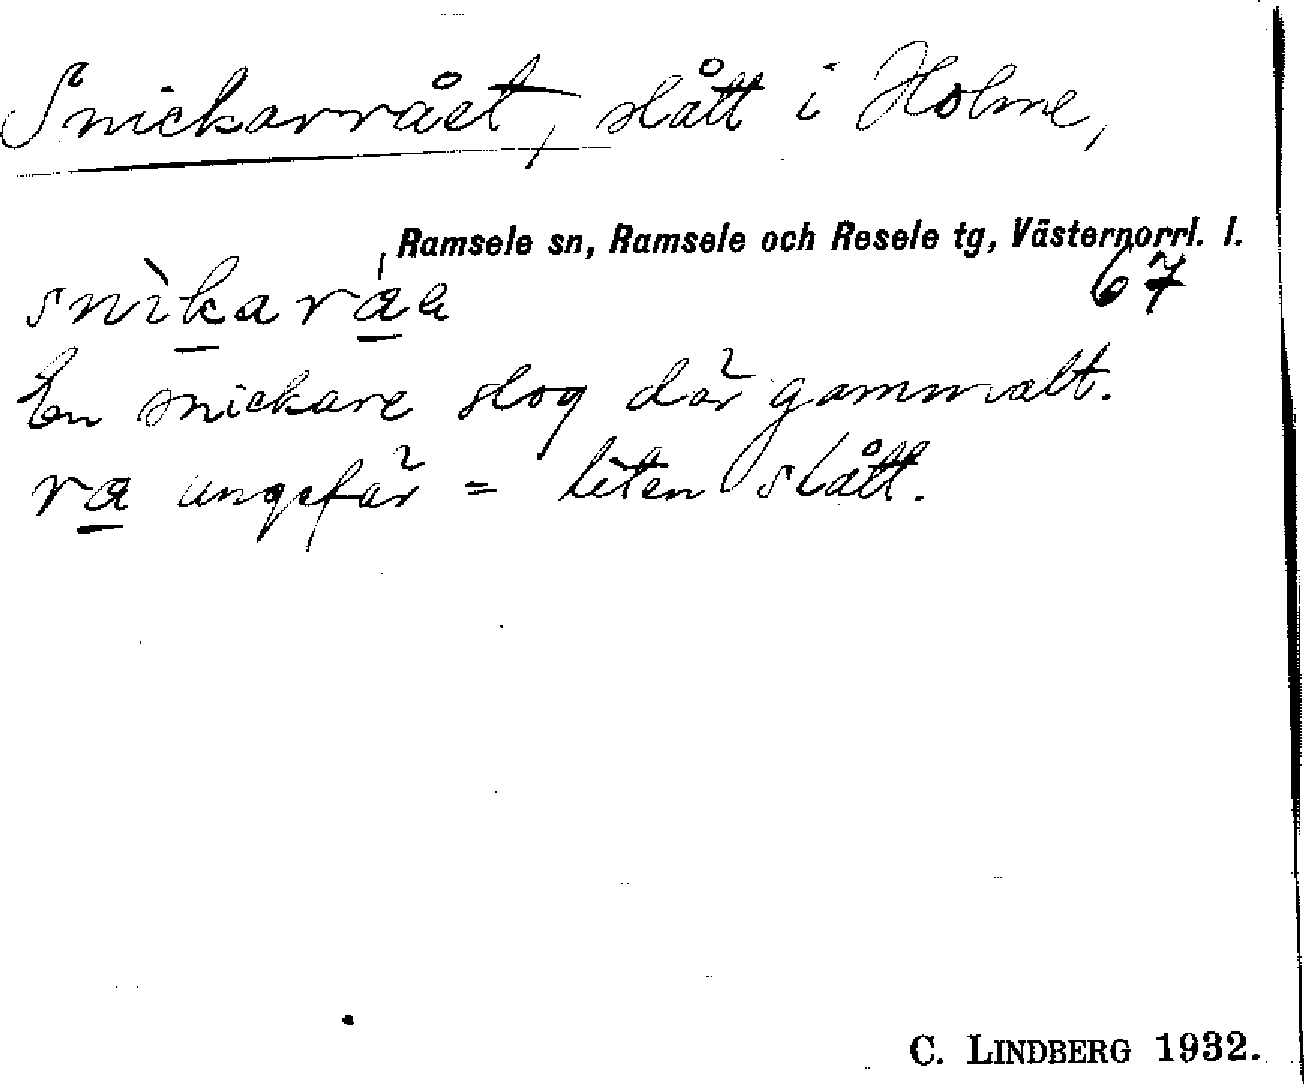 Snickarrået, slått i Holme,
Ramsele sn, Ramsele och Resele tg, Västernorrl. l.
snìkaráa 67
En snickare slog där gammalt.
ra ungefär = liten slått.
C. LINDBERG 1932.